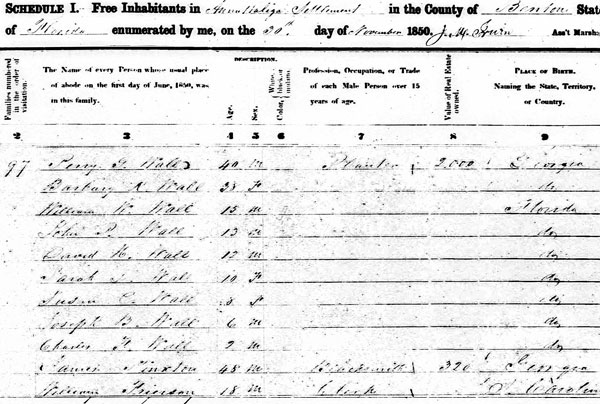 SCHEDULE I.- Free Inhabitants in Annuttaliga Settlement in the County of Benton State
of Florida enumerated by me, on the 30th day of November 1850. J. M. Ass't Marsha
DESCRIPTION.
Families numbered in the order of visitation.
The Name of every Person whose usual place of abode on the first day of June, 1850, was in this family.
Age.
Sex.
White, black, or mulatto.
Color,
Profession, Occupation, or Trade of each Male Person over 15 years of age.
Value of Real Estate owned.
PLACE OF BIRTH. Naming the State, Territory, or Country.
2 3 4 5 6 7 8 9
97 Perry G. Wall 40 m Planter 2,000 Georgia
Barbary R. Wall 38 F do
William W. Wall 15 m Florida
John P. Wall 13 m do
David H. Wall 12 m do
Sarah Wall 10 F do
Susan C. Wall 8 F do
Joseph B. Wall 6 m do
Charles H. Wall 2 m do
James 45 m Blacksmith 320 Georgia
William 18 m Clerk S. Carolin